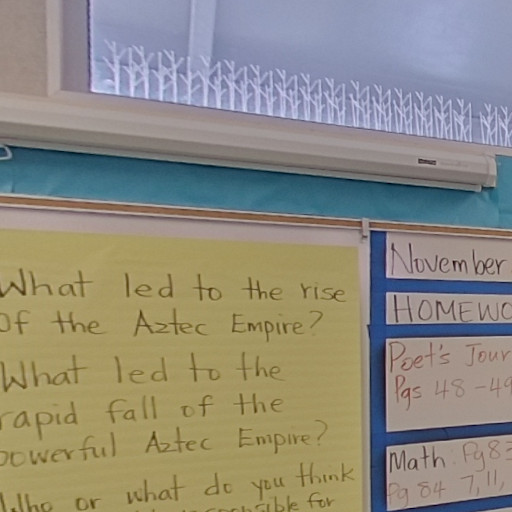 What led to the rise
of the Aztec Empire?
What led to the
rapid fall of the
powerful Aztec Empire?
Who or what do you think
responsible for
November
HOMEWO
Poet's Jour
Pgs 48-49
Math: Pg 83
Pg 84 7, 11,